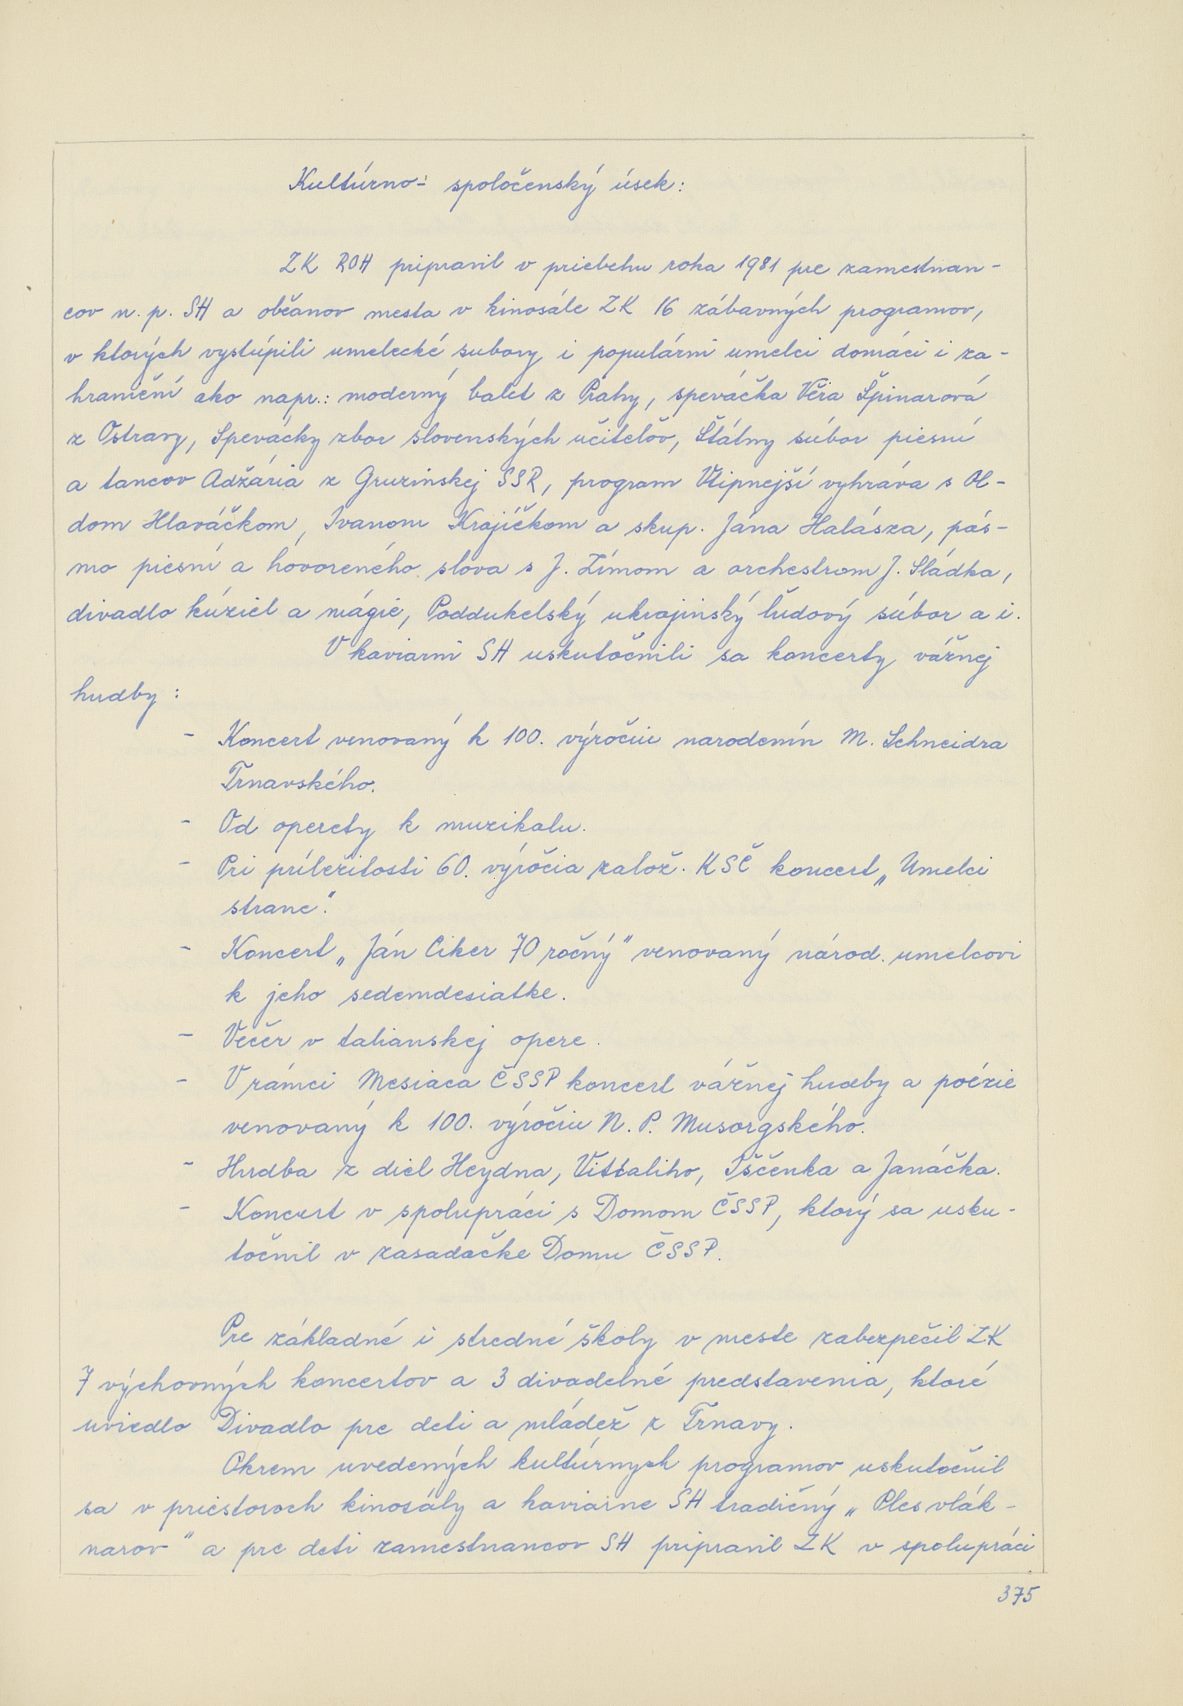 Kultúrno - spoločenský úsek:
ZK ROH pripravil v priebehu roka 1981 pre zamestnan-
cov n. p. SH a občanov mesta v kinosále ZK 16 zábavných programov,
v ktorých vystúpili umelecké súbory i populárni umelci domáci i za-
hraniční ako napr.: moderný balet z Prahy, speváčka Věra Špinarová
z Ostravy, Spevácky zbor slovenských učiteľov, Štátny súbor piesní
a tancov Adžária z Gruzínskej SSR, program Vtipnejší vyhráva s Ol-
dom Hlaváčkom, Ivanom Krajíčkom a skup. Jána Halásza, pás-
mo piesní a hovoreného slova s J. Zímom a orchestrom J. Sládka,
divadlo kúziel a mágie, Poddukelský ukrajinský ľudový súbor a i.
V kaviarni SH uskutočnili sa koncerty vážnej
hudby:
- Koncert venovaný k 100. výročiu narodenín M. Schneidra
Trnavského.
- Od operety k muzikalu.
- Pri príležitosti 60. výročia založ. KSČ koncert „Umelci
strane".
- Koncert „Ján Ciker 70 ročný" venovaný národ. umelcovi
k jeho sedemdesiatke.
- Večer v talianskej opere.
- V rámci Mesiaca ČSSP koncert vážnej hudby a poézie
venovaný k 100. výročiu N. P. Musorgského.
- Hudba z diel Heydna, Vittaliho, Iščenka a Janáčka.
- Koncert v spolupráci s Domom ČSSP, ktorý sa usku-
točnil v zasadačke Domu ČSSP.
Pre základné i stredné školy v meste zabezpečil ZK
7 výchovných koncertov a 3 divadelné predstavenia, ktoré
uviedlo Divadlo pre deti a mládež z Trnavy.
Okrem uvedených kultúrnych programov uskutočnil
sa v priestoroch kinosály a kaviarne SH tradičný „Ples vlák-
narov" a pre deti zamestnancov SH pripravil ZK v spolupráci
375